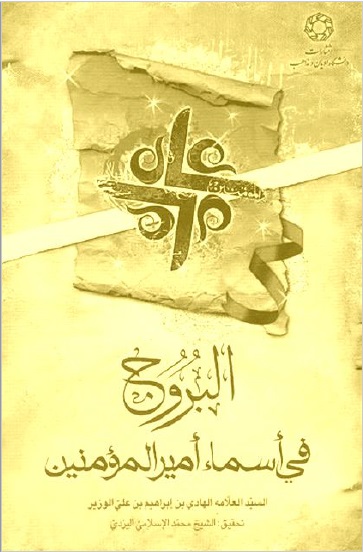 انتشارات
دانشگاه ادیان و مذاهب
علی
البُرُوج
في أسماء أمير المؤمنين
السيّد العلّامه الهادي بن إبراهيم بن علي الوزير
تحقيق: الشيخ محمّد الإسلامي اليزدي